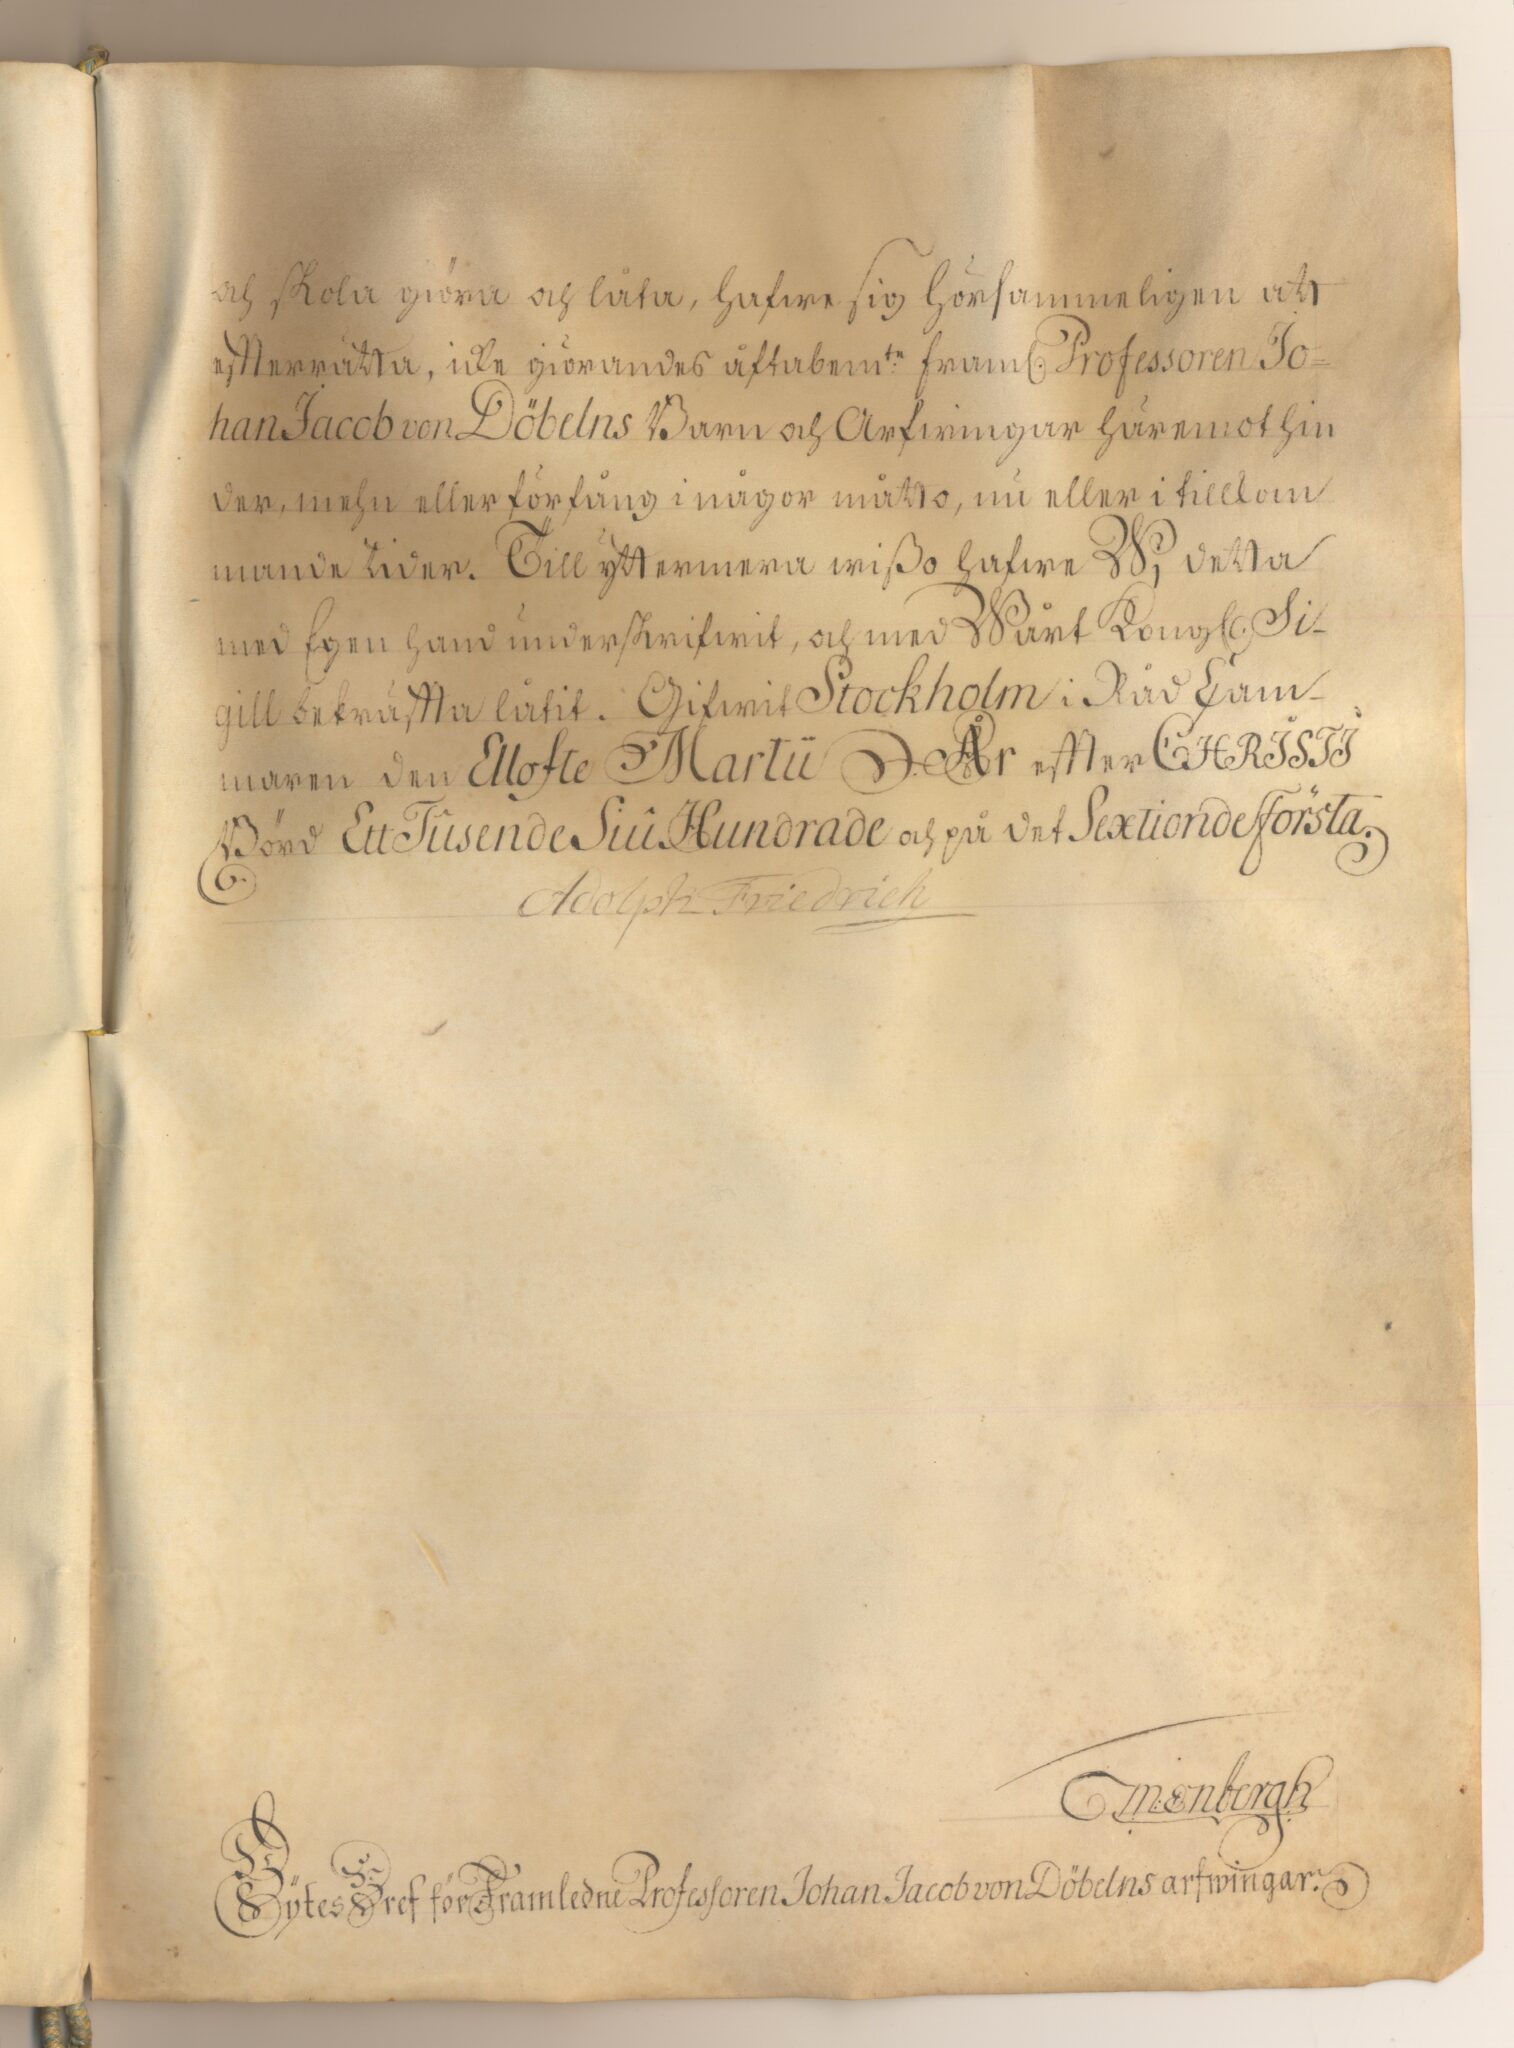 och skola giöra och låta, hafwe sig hörsammeligen att
effterrätta, icke giörandes åftabemte framl. Professoren Jo-
han Jacob von Döbelns Barn och Arfwingar häremot hin
der, mehn eller förfång i någor måtto, nu eller i tillkom
mande tider. Till yttermera wißo hafwe Wj detta
med Egen hand underskrifwit, och med Wårt Kongl. Si-
gill bekräffta låtit. Gifwit Stockholm i Råd Cam-
maren den Ellofte Martii Åhr effter CHRISTI
Börd Ett Tusende Siu Hundrade och på det Sextionde första.
Adolph Friedrich
Bytes Bref för Framledne Professoren Johan Jacob von Döbelns arfwingar.